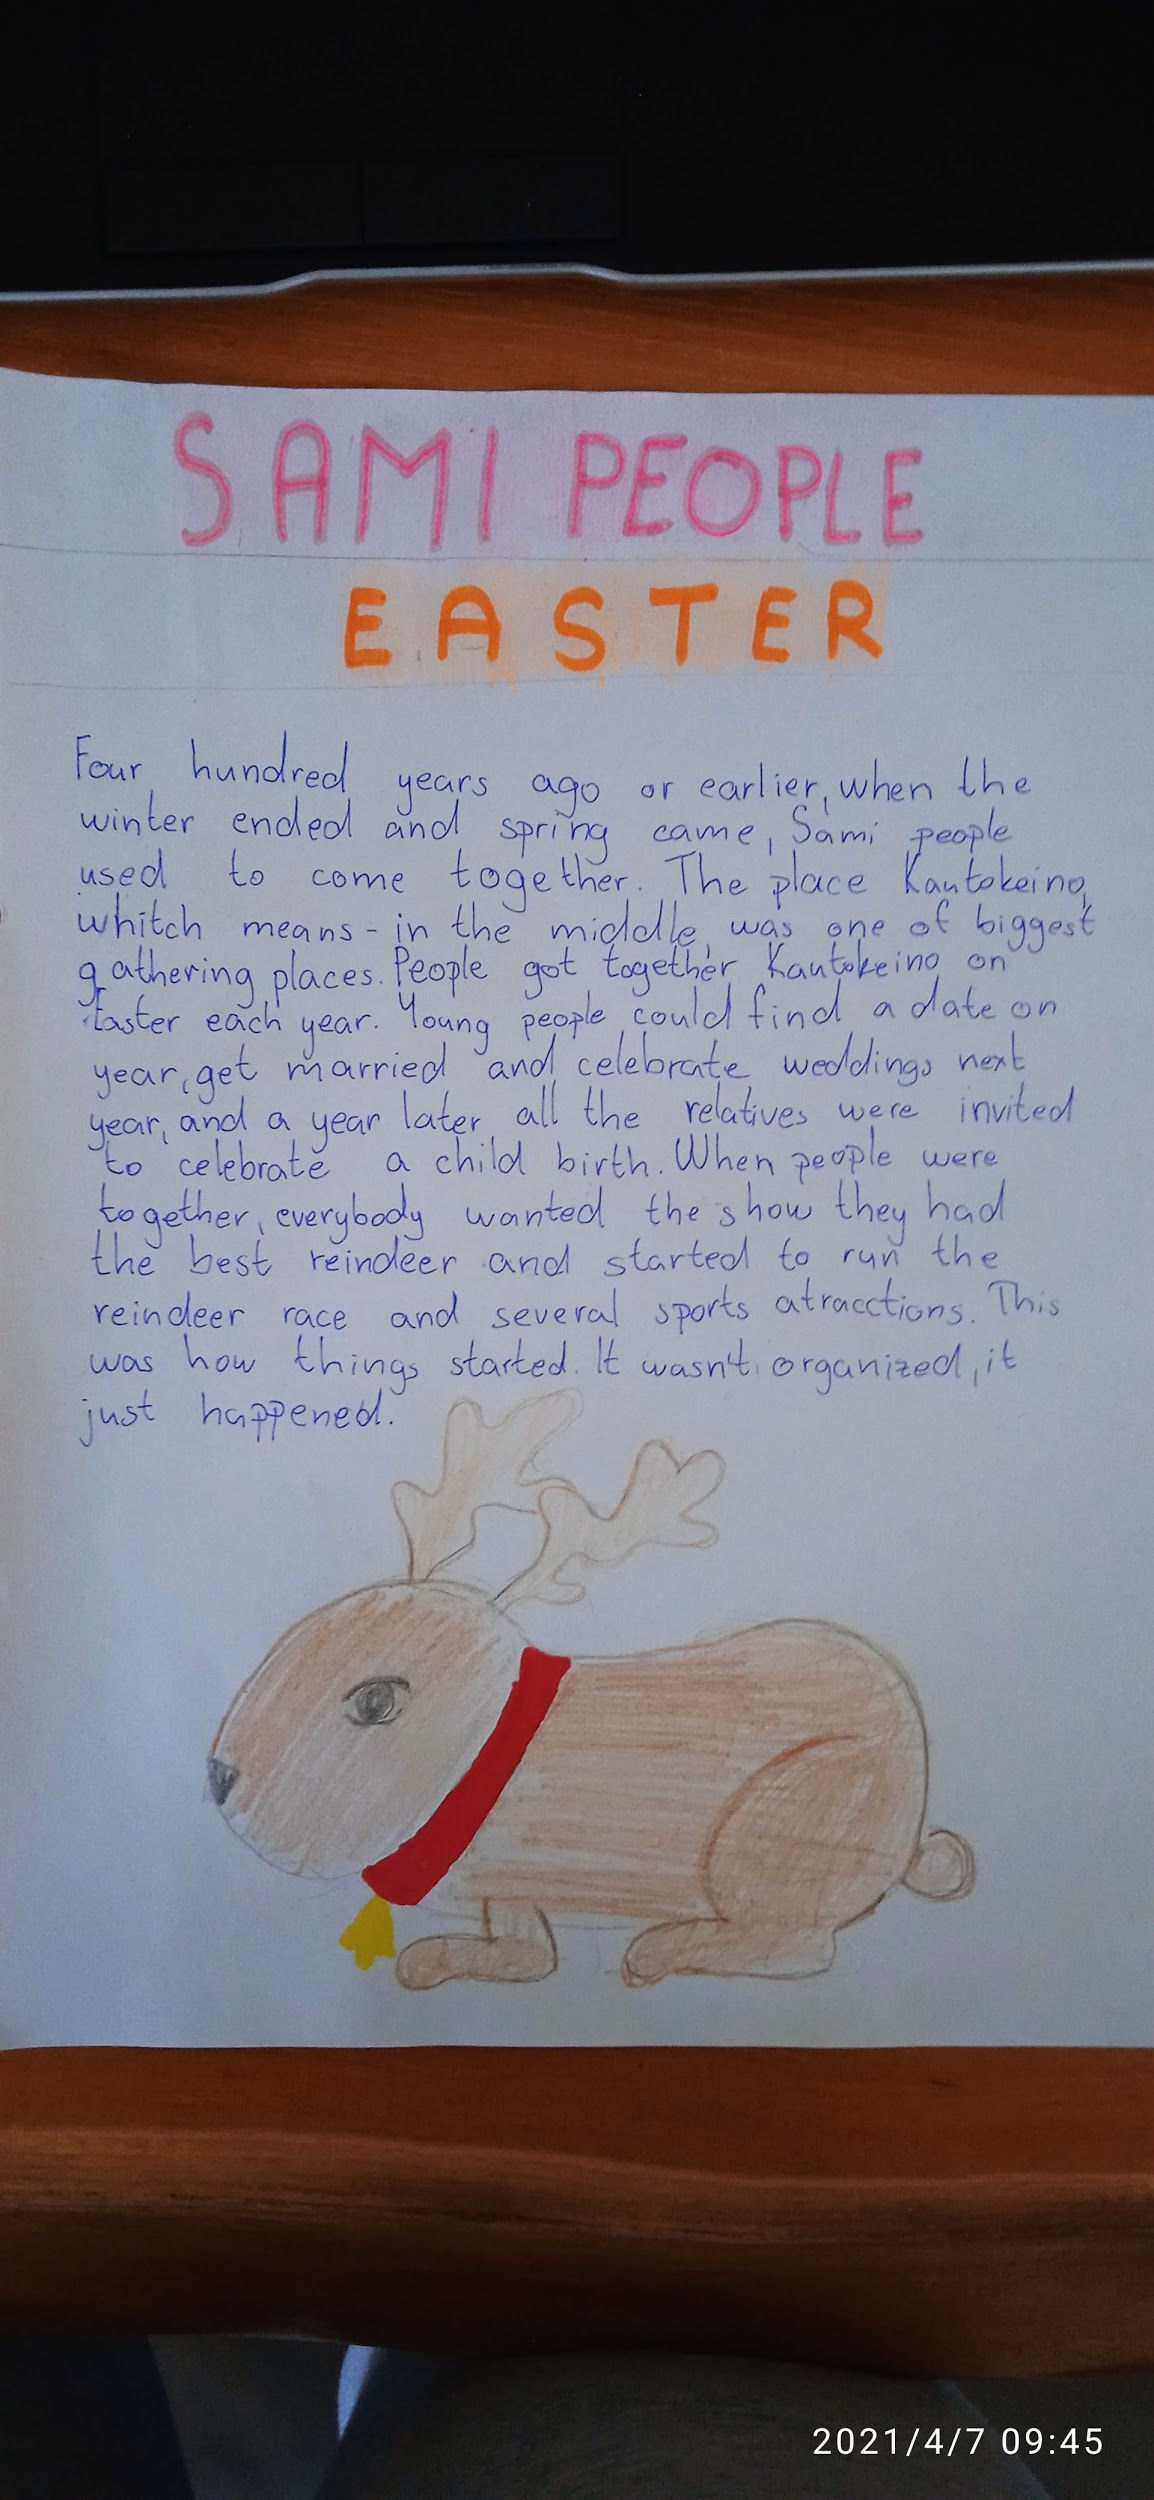 SAMI PEOPLE
EASTER
Four hundred years ago or earlier, when the
winter ended and spring came, Sami people
used to come together. The place Kautokeino,
whitch means - in the middle, was one of biggest
gathering places. People got together Kautokeino on
Easter each year. Young people could find a date on
year, get married and celebrate weddings next
year, and a year later all the relatives were invited
to celebrate a child birth. When people were
together, everybody wanted the show they had
the best reindeer and started to run the
reindeer race and several sports atracctions. This
was how things started. It wasn't organized, it
just happened.
2021/4/7 09:45